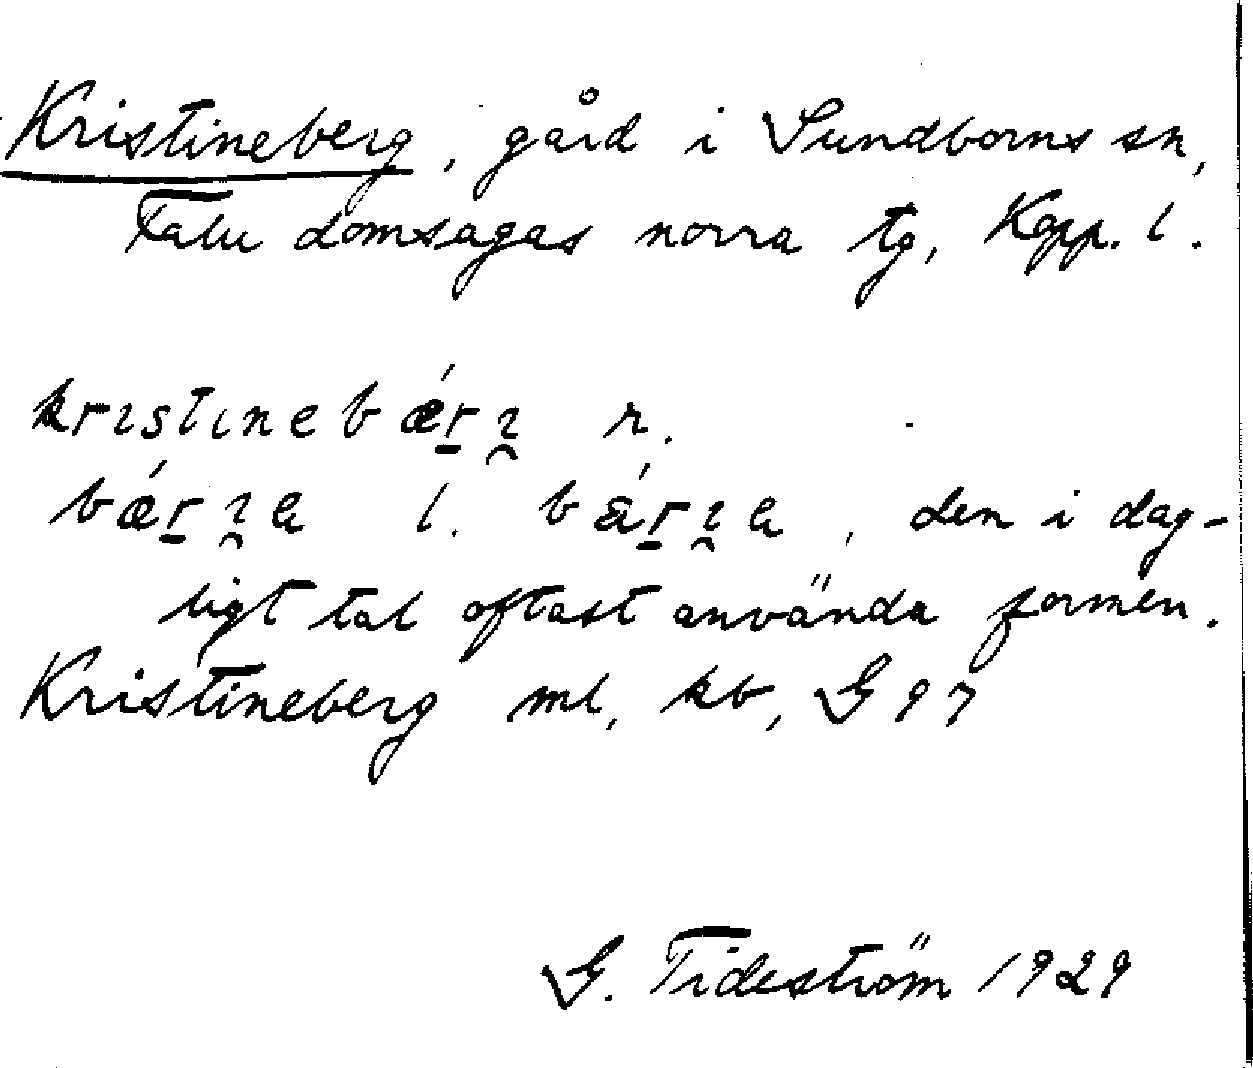 Kristineberg, gård i Sundborns sn,
Falu domsagas norra tg, Kopp. l.
kristinebǽrı̯ n.
bǽrı̯a l. bárı̯a, den i dag-
ligt tal oftast använda formen.
Kristineberg ml, kb, G 97
G. Tideström 1929